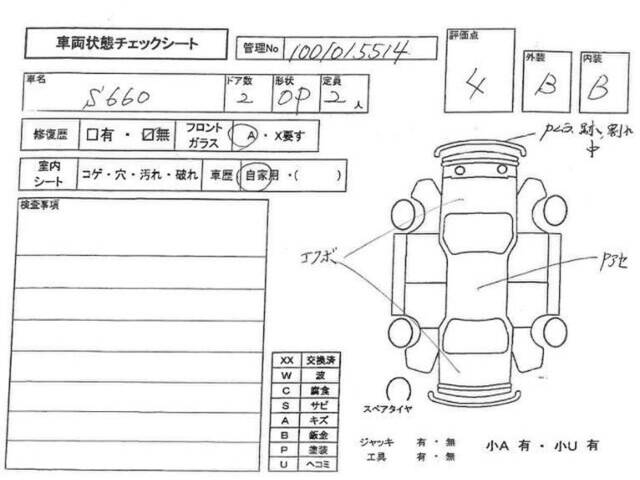 車両状態チェックシート
管理No 1001015514
評価点 4
外装 B
内装 B
車名 S660
ドア数 2
形状 OP
定員 2人
修復歴 □有・☑無
フロントガラス A・X要す
室内シート コゲ・穴・汚れ・破れ
車歴 自家用・( )
検査事項
中
エクボ
XX 交換済
W 波
C 腐食
S サビ
A キズ
B 鈑金
P 塗装
U ヘコミ
スペアタイヤ
ジャッキ 有・無
工具 有・無
小A 有・小U 有